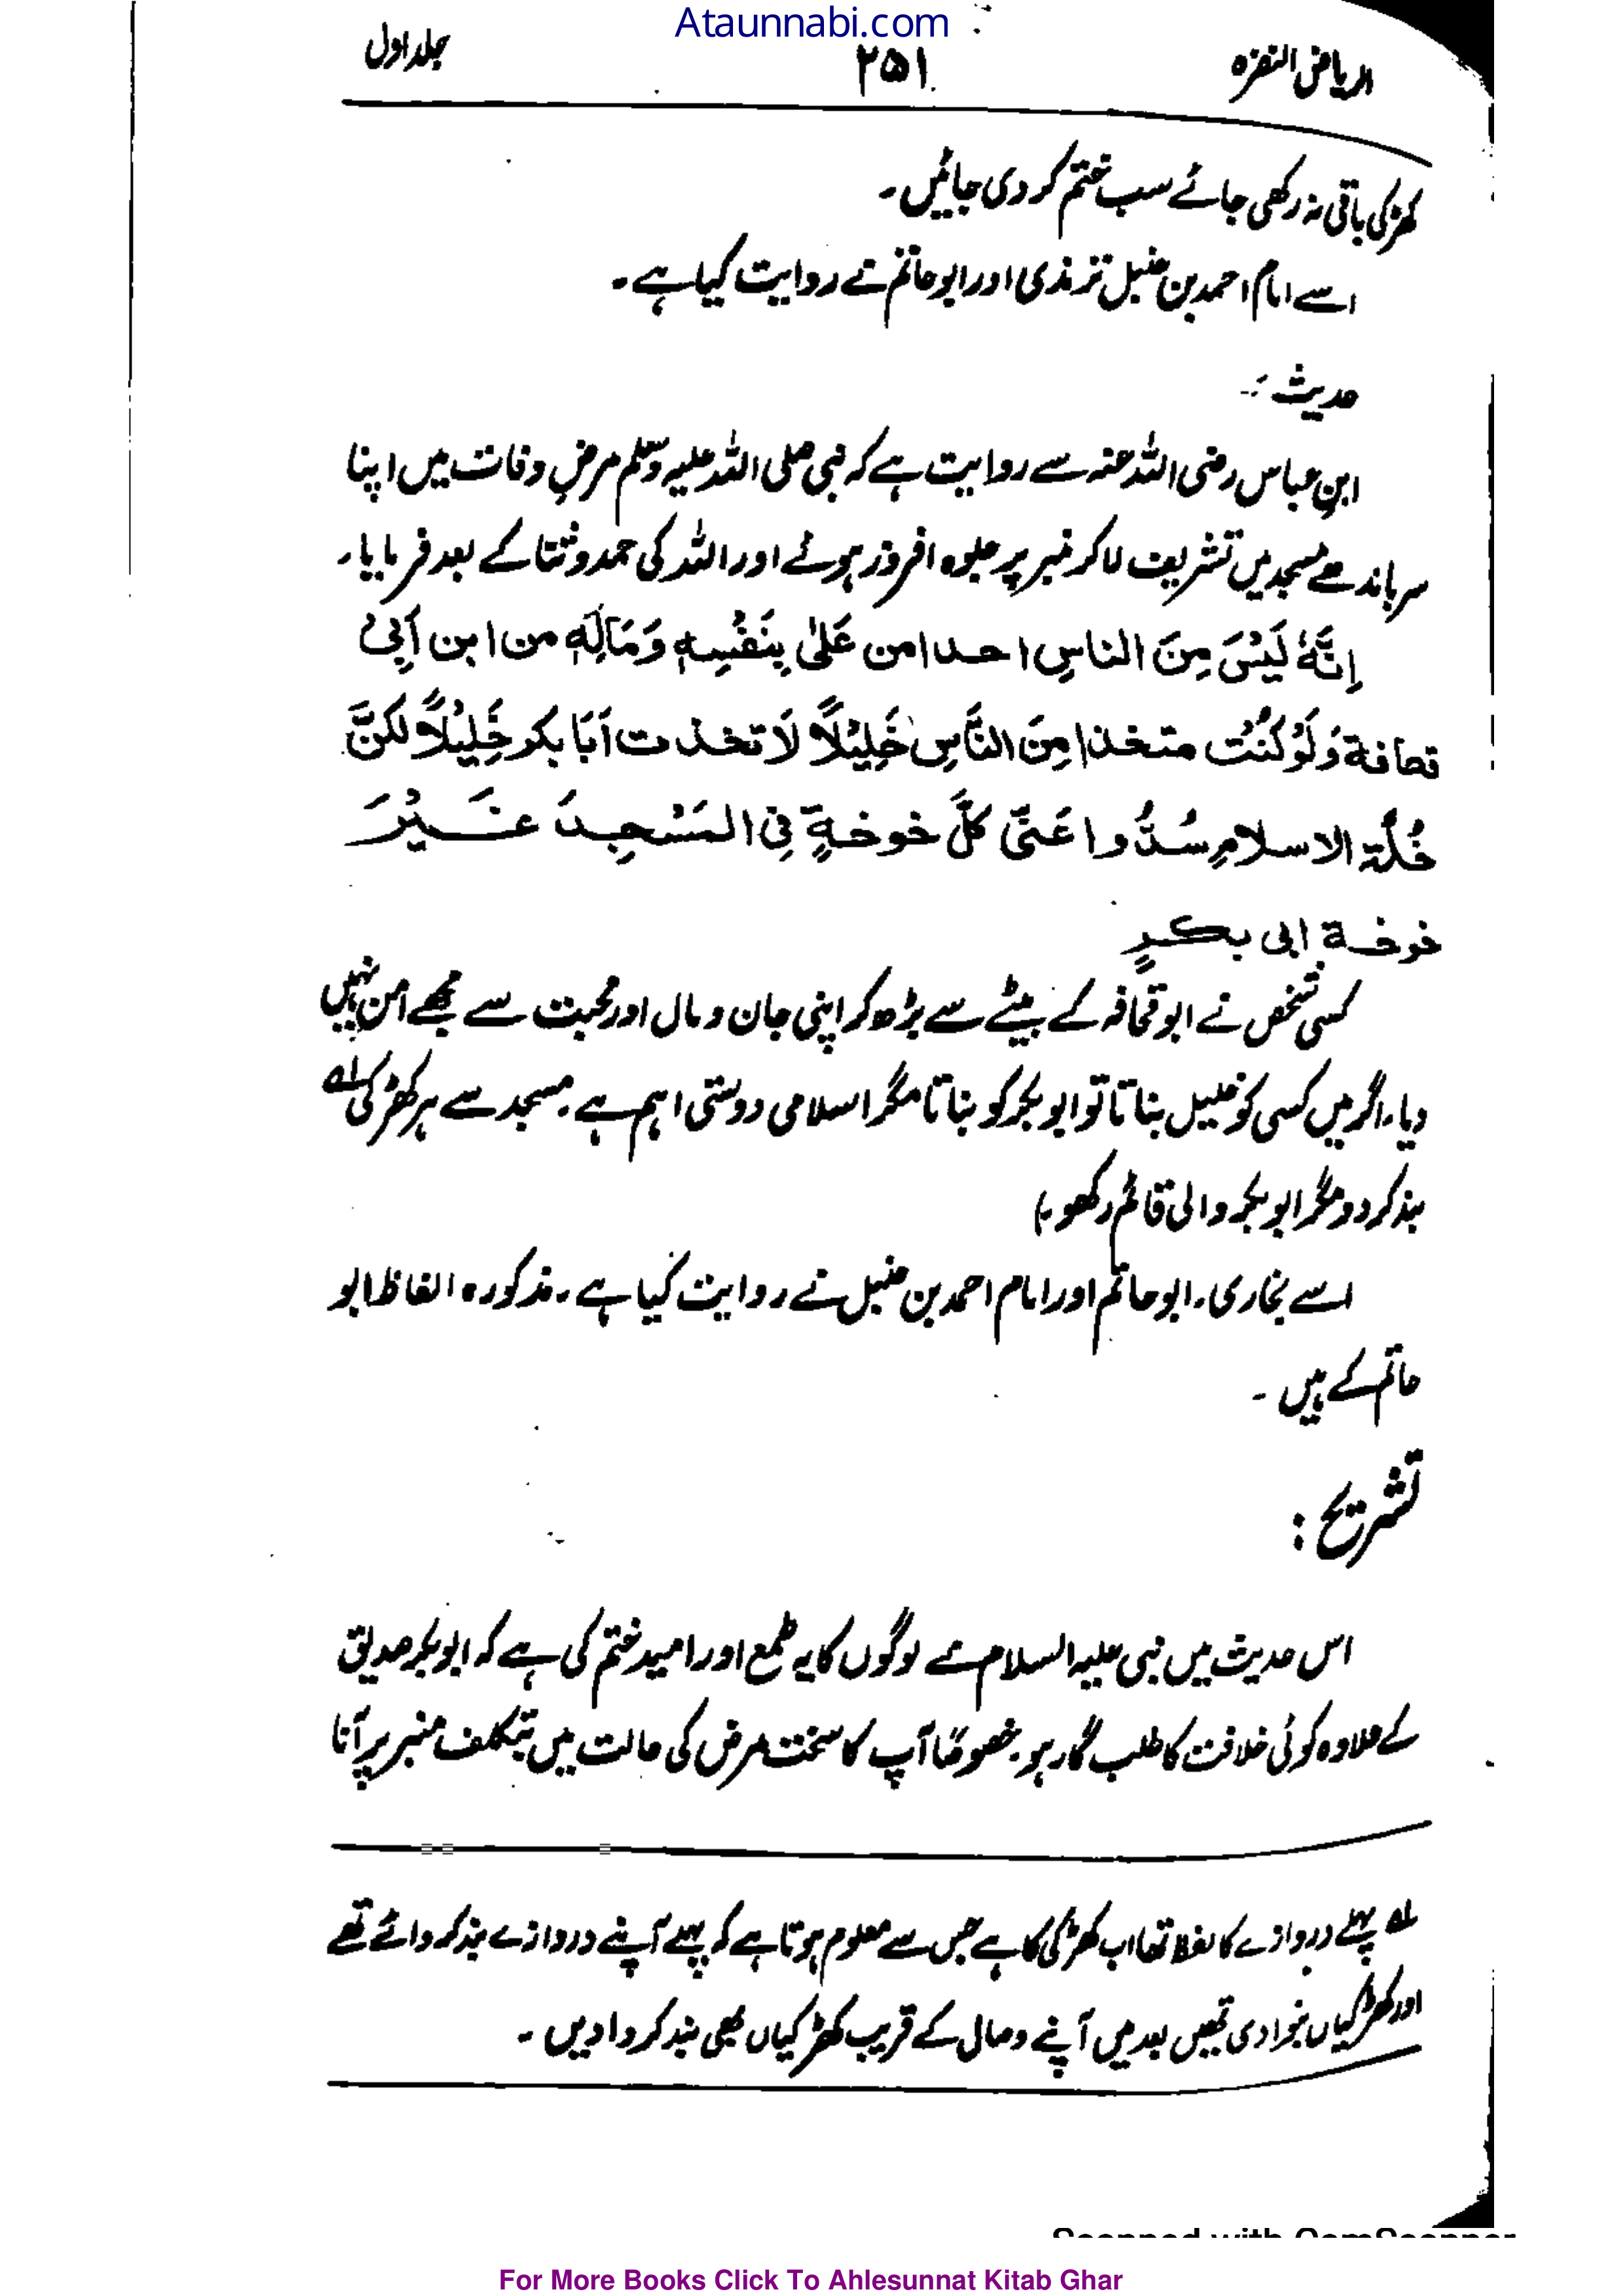 Ataunnabi.com
الریاض النضرہ ۲۵۱ جلد اول
کھڑکی باقی نہ رکھی جائے سب ختم کر دی جائیں۔
اسے امام احمد بن حنبل ترمذی اور ابوحاتم نے روایت کیا ہے۔
حدیث :-
ابن عباس رضی اللہ عنہ سے روایت ہے کہ نبی صلی اللہ علیہ وسلم مرضِ وفات میں اپنا
سر باندھے مسجد میں تشریف لا کر منبر پر جلوہ افروز ہوئے اور اللہ کی حمد و ثنا کے بعد فرمایا۔
اِنَّہٗ لَیْسَ مِنَ الناسِ احدا من عَلیٰ بِنَفْسِہٖ وَمَالِہٖ من ابن اَبِیْ
قحافة وَلَوْ کُنْتُ متخذا مِنَ النَّاسِ خَلِیْلًا لَا تخذت اَبَا بکر خَلِیْلًا لکنَّ
خُلَّة الاسلامِ سُدُّوا عَنّیْ کلَّ خوخةٍ فِی المَسْجِدَ غَیْرَ
خوخة ابی بکرٍ
کسی شخص نے ابوقحافہ کے بیٹے سے بڑھ کر اپنی جان و مال اور محبت سے مجھے امن نہیں
دیا، اگر میں کسی کو خلیل بناتا تو ابوبکر کو بناتا مگر اسلامی دوستی اہم ہے۔ مسجد سے ہر کھڑکی لہ
بند کر دو مگر ابوبکر والی قائم رکھو۔)
اسے بخاری، ابوحاتم اور امام احمد بن حنبل نے روایت کیا ہے۔ مذکورہ الفاظ ابو
حاتم کے ہیں۔
تشریح :
اس حدیث میں نبی علیہ السلام نے لوگوں کا یہ طمع اور امید ختم کی ہے کہ ابوبکر صدیق
کے علاوہ کوئی خلافت کا طلب گار ہو۔ خصوصًا آپ کا سخت مرض کی حالت میں بتکلف منبر پر آنا
لہ پہلے دروازے کا لفظ تھا اب کھڑکی کا ہے جس سے معلوم ہوتا ہے کہ پہلے آپنے دروازے بند کروائے تھے
اور کھڑکیاں بنوا دی تھیں بعد میں آپنے وصال کے قریب کھڑکیاں بھی بند کروا دیں۔
Scanned with CamScanner
For More Books Click To Ahlesunnat Kitab Ghar